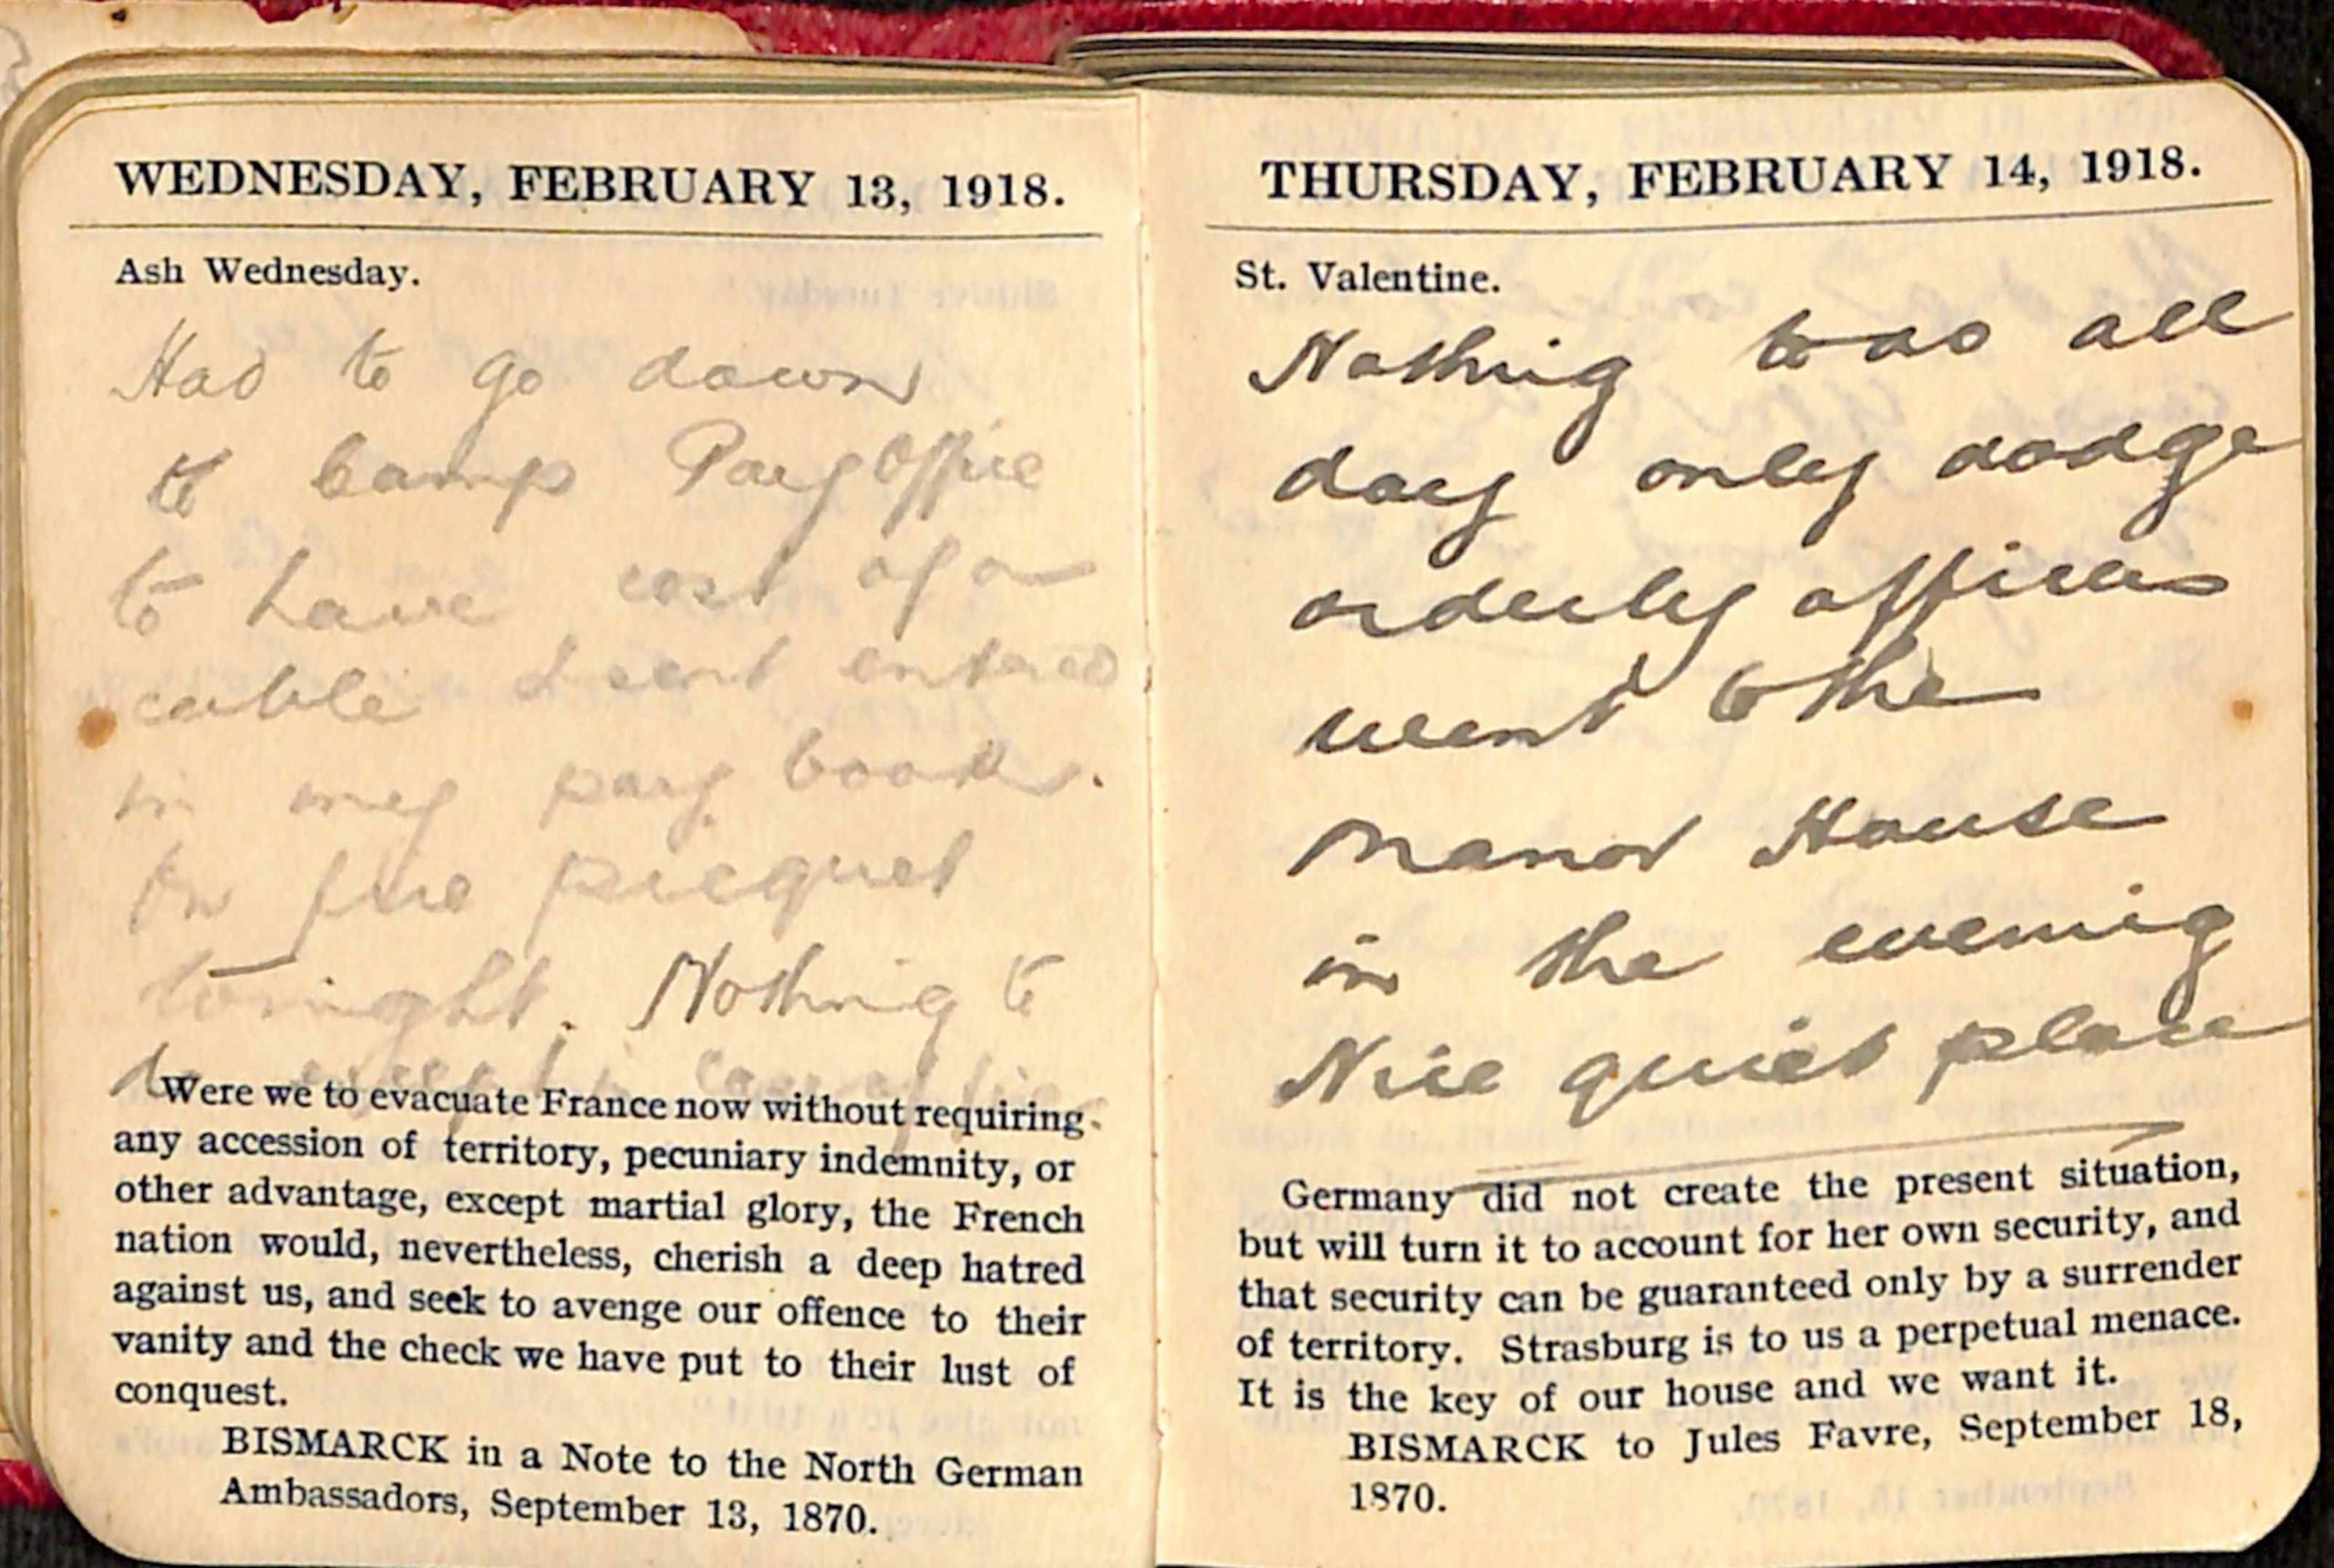 WEDNESDAY, FEBRUARY 13, 1918.
Ash Wednesday.
Had to go down
to Camp Pay Office
to have cost of a
cable I sent entered
in my pay book.
On fire picquet
tonight. Nothing to
do except
Were we to evacuate France now without requiring
any accession of territory, pecuniary indemnity, or
other advantage, except martial glory, the French
nation would, nevertheless, cherish a deep hatred
against us, and seek to avenge our offence to their
vanity and the check we have put to their lust of
conquest.
BISMARCK in a Note to the North German
Ambassadors, September 13, 1870.
THURSDAY, FEBRUARY 14, 1918.
St. Valentine.
Nothing to do all
day only dodge
orderly officers
went to the
Manor House
in the evening
Nice quiet place
Germany did not create the present situation,
but will turn it to account for her own security, and
that security can be guaranteed only by a surrender
of territory. Strasburg is to us a perpetual menace.
It is the key of our house and we want it.
BISMARCK to Jules Favre, September 18,
1870.